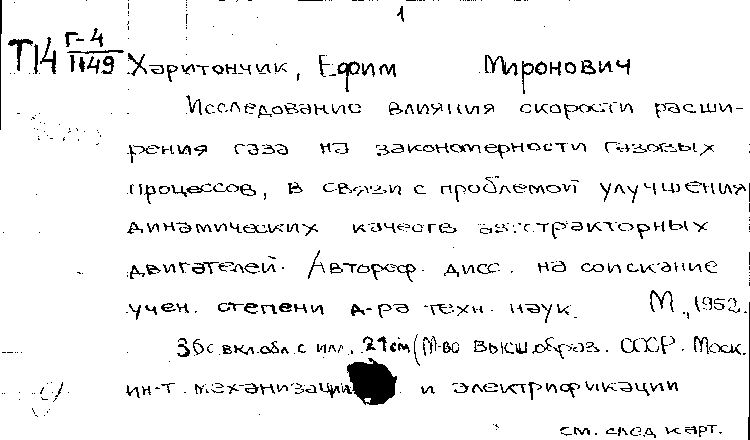 1
Т14 Г-4/1149 Харитончик, Ефим Миронович
Исследование влияния скорости расши-
рения газа на закономерности газовых
процессов, в связи с проблемой улучшения
динамических качеств автотракторных
двигателей. Автореф. дисс. на соискание
учен. степени д-ра техн. наук. М., 1952.
36с вкл. обл. с илл. 21см (М-во высш. образ. СССР. Моск.
ин-т. механизации и электрификации
см. след карт.